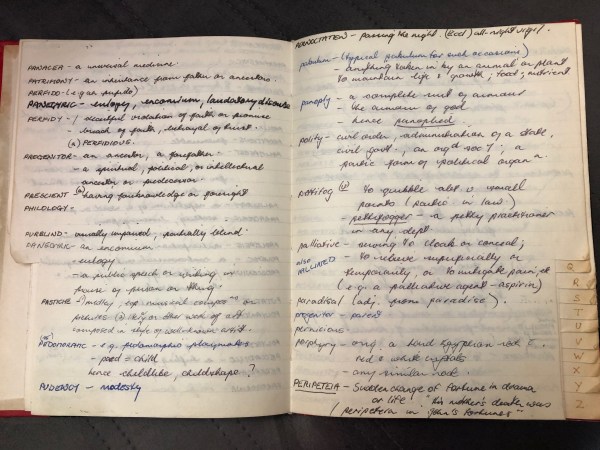 PANACEA - a universal medicine.
PATRIMONY - an inheritance from father or ancestors.
PERFIDO - (e.g. an perfido)
PANEGYRIC - eulogy, encomium, laudatory discourse
PERFIDY - / deceitful violation of faith or promise
- breach of faith, betrayal of trust.
(a) PERFIDIOUS.
PROGENITOR - an ancestor, a forefather.
- a spiritual, political, or intellectual
ancestor or predecessor.
PRESCIENT (a) having foreknowledge or foresight
PHILOLOGY -
PURBLIND - visually impaired, partially blind
PANEGYRIC - an encomium.
- eulogy
- a public speech or writing in
praise of person or thing.
PASTICHE - medley, esp. musical
picture (2) lity or other work of art
composed in style of well-known artist.
PAEDOMORPHIC - e.g. pedomorphic
- paed = child
hence childlike, childshape ?
PUDENCY - modesty
PERNOCTATION - passing the night. (Eccl) all-night vigil.
pabulum - (typical pabulum for such occasions)
- anything taken in by an animal or plant
to maintain life & growth; food; nutrient
panoply - a complete suit of armour
- the armour of god
- hence panoplied
polity - civil order, administration of a state,
civil govt., an orgd socy; a
partic form of political organ n.
pettifog (v) to quibble abt v. small
points (partic in law)
- pettifogger - a petty practitioner
in any dept
palliative - serving to cloak or conceal;
also - to relieve superficially or
PALLIATED temporarily, or to mitigate pain, etc
(e.g. a palliative agent - aspirin)
paradisal (adj. from paradise).
progenitor - parent
pernicious -
Porphyry - orig. a hard Egyptian rock c.
red & white crystals
- any similar rock.
PERIPETEIA - Sudden change of fortune in drama
or life. "his mother's death was
/ peripeteia in John's fortunes"
Q
R
S
T
U
V
W
X
Y
Z